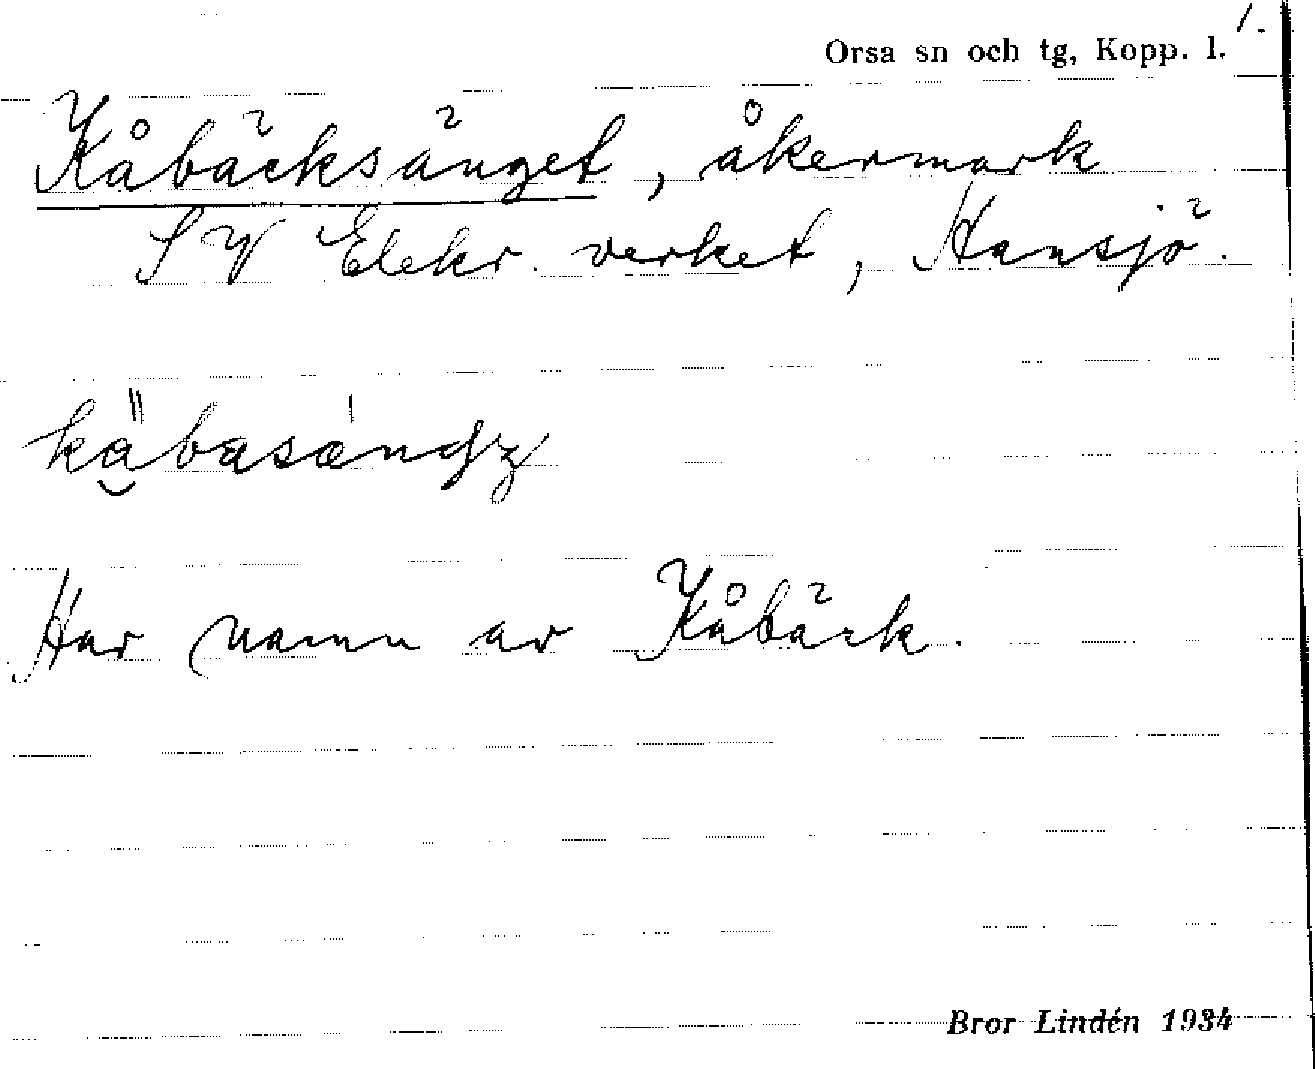 1.
Orsa sn och tg, Kopp. l.
Kåbäcksänget, åkermark
SV Elekr. verket, Hansjö.
Har namn av Kåbäck.
Bror Lindén 1934